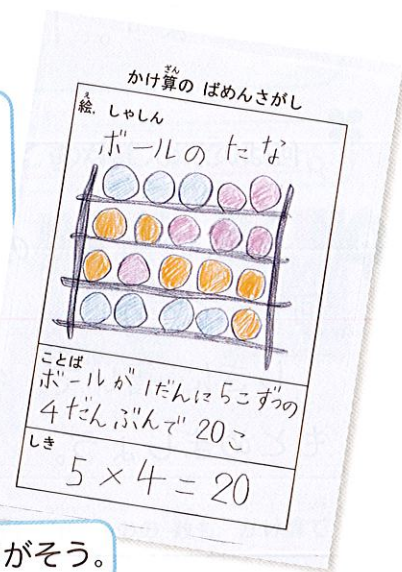 かけ算の ばめんさがし
絵,しゃしん
ボールの たな
ことば
ボールが 1だんに 5こずつの
4だんぶんで 20こ
しき
5×4=20
がそう。